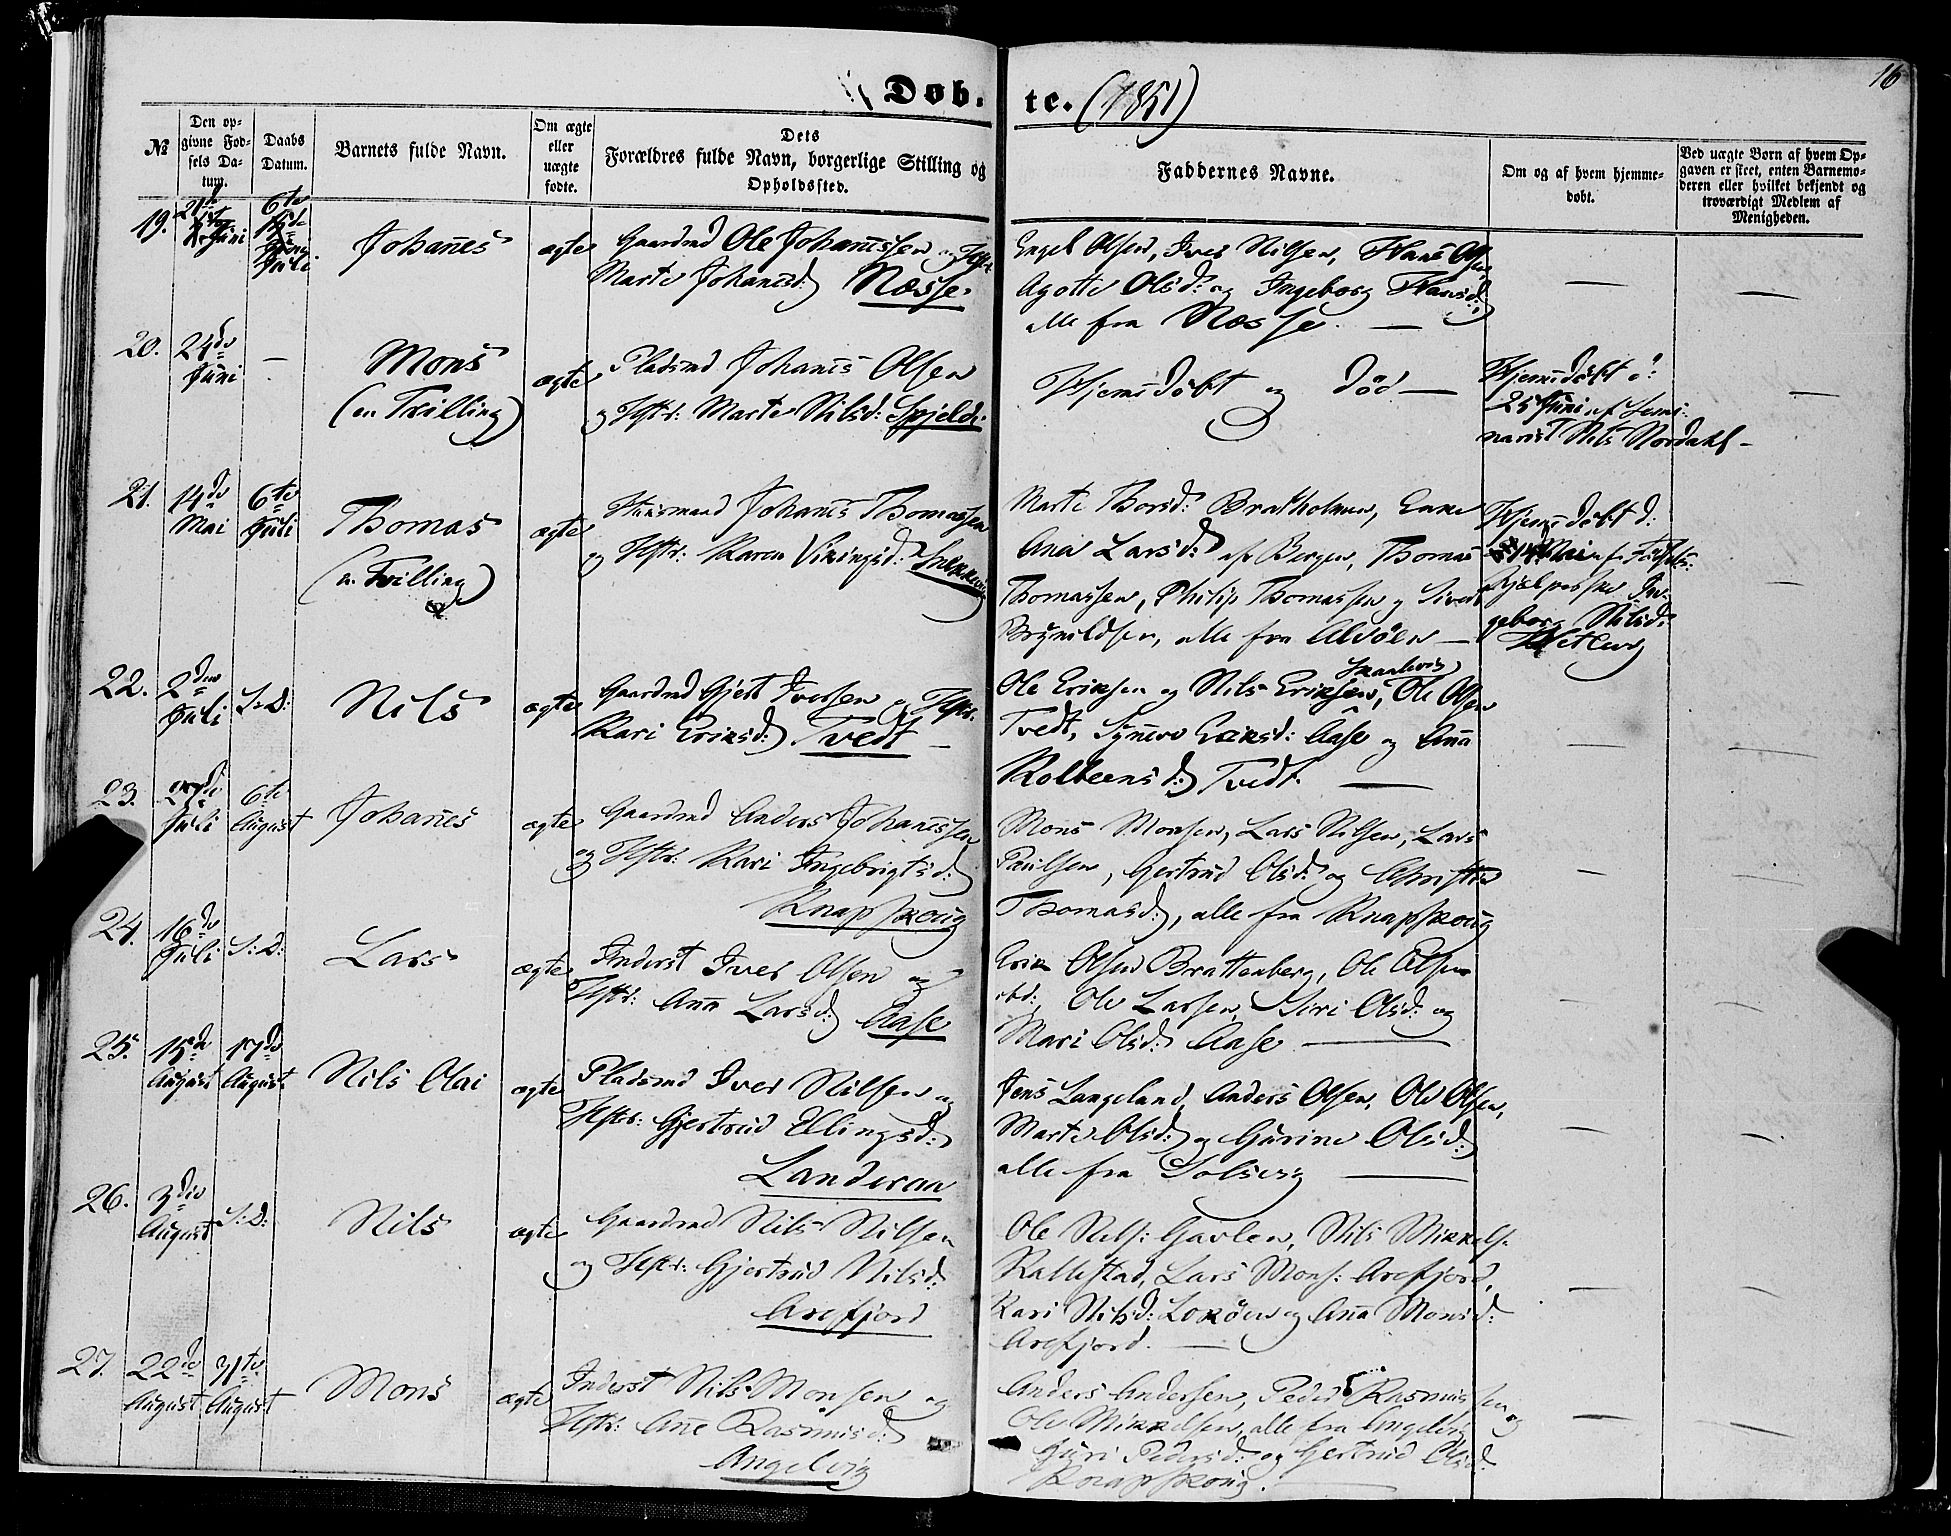 Døb-te. (1851)
16
№
Den op-
givne Fød-
sels Da-
tum.
Daabs
Datum.
Barnets fulde Navn.
Om ægte
eller
uægte
fødte.
Dets
Forældres fulde Navn, borgerlige Stilling og
Opholdssted.
Faddernes Navne.
Om og af hvem hjemme-
døbt.
Ved uægte Børn af hvem Op-
gaven er skeet, enten Barnemo-
deren eller hvilket bekjendt og
troværdigt Medlem af
Menigheden.
19.
Juni
6te
Juli
Johañes
ægte
Gaardmd Ole Johañessen og Hstr:
Marte Johañesd: Næsse
Engel Olsen, Iver Nilsen, Hans Olsen
Agotte Olsd: og Ingeborg Hansd:
alle fra Næsse. —
20.
24de
Juni
—
Mons
(en Trilling)
ægte
Pladsmd Johañes Olsen
og Hstr: Marte Nilsd: Spjeld:
Hjemedøbt og død —
Hjemedøbt d:
25 Juni af Semi-
narist Nils Nordahl —
21.
14de
Mai
6te
Juli
Thomas
(en Tvilling)
ægte
Huusmand Johañes Thomassen
og Hstr: Karen Vikingsd:
Marte Thorsd: Bratholmen,
Ana Larsd: af Bergen, Thomas
Thomassen, Philip Thomassen og Sivert
Brynildsen, alle fra Alvøen —
Hjemedøbt d:
14 Mai af Fødsels-
hjælperske In-
geborg Nilsd:
22.
2den
Juli
S: D:
Nils
ægte
Gaardmd Gjert Iversen og Hstr:
Kari Eriksd: Tvedt —
Ole Eriksen og Nils Eriksen, Ole Olsen
Tvedt, Syñeve Eriksd: Aase og Aña
Kolbeensd: Tvedt. —
23.
27de
Juli
6te
August
Johañes
ægte
Gaardmd Anders Johañessen
og Hstr: Kari Ingebrigtsd:
Knapskoug
Mons Monsen, Lars Nilsen, Lars
Paulsen, Gertrud Olsd: og Christi
Thomasd:, alle fra Knapskoug
24.
16de
Juli
S: D:
Lars
ægte
Inderst Iver Olsen og
Hstr: Aña Larsd: Aase
Erik Olsen Brattenberg, Ole Olsen
ibd:, Ole Larsen, Siri Olsd: og
Mari Olsd: Aase —
25.
15de
August
17de
August
Nils Olai
ægte
Pladsmd Iver Nilsen og
Hstr: Gjertrud Ellingsd:
Landeraa
Jens Langeland, Anders Olsen, Ole Olsen,
Marte Olsd: og Gurine Olsd:
alle fra Solsvig —
26.
3die
August
S: D:
Nils
ægte
Gaardmd Nils Nilsen
og Hstr: Gjertrud Nilsd:
Arefjord
Ole Nils: Gavlen, Nils Mikkels:
Kallestad, Lars Mons: Arefjord,
Kari Nilsd: Lokøen og Aña Monsd:
Arefjord. —
27.
22de
August
31te
August
Mons
ægte
Inderst Nils Monsen og
Hstr: Añe Rasmusd:
Angelvig
Anders Andersen, Peder Rasmussen og
Ole Mikkelsen, alle fra Angelvig
Guri Pedersd: og Gertrud Olsd:
Knapskoug.